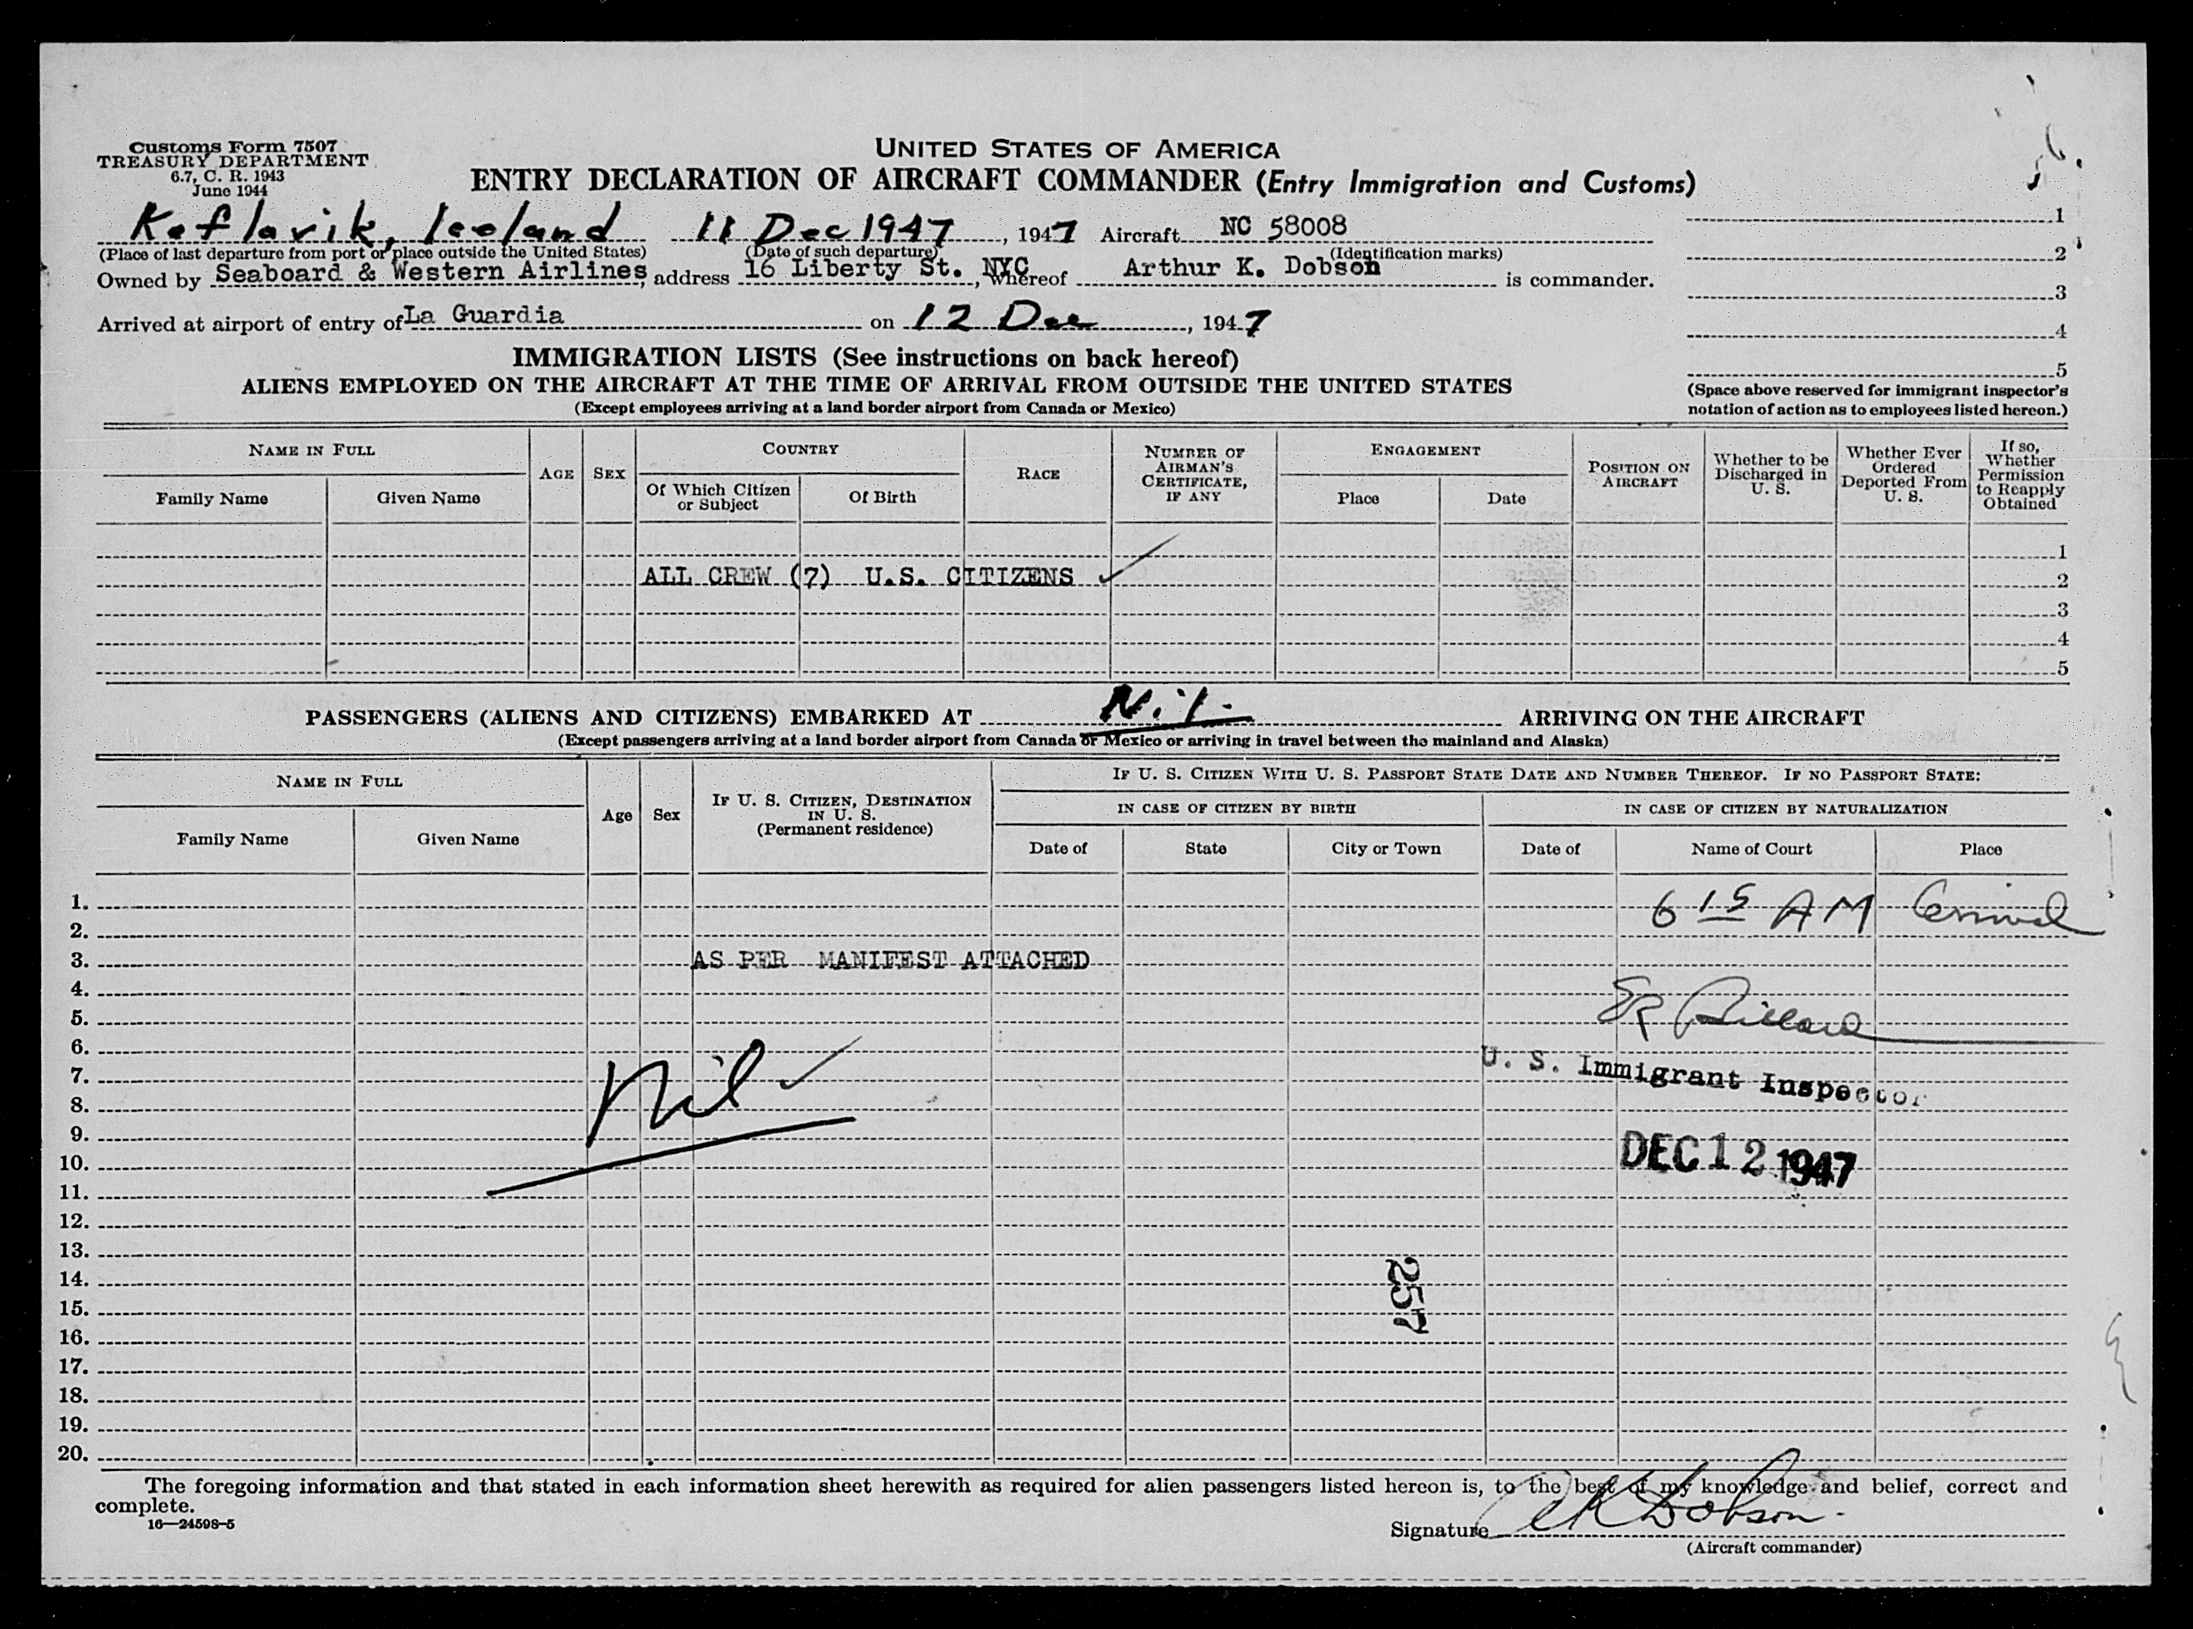 Customs Form 7507
TREASURY DEPARTMENT
6.7, C. R. 1943
June 1944
UNITED STATES OF AMERICA
ENTRY DECLARATION OF AIRCRAFT COMMANDER (Entry Immigration and Customs)
Keflavik, Iceland 11 Dec 1947, 1947 Aircraft NC 58008
(Place of last departure from port or place outside the United States) (Date of such departure) (Identification marks)
Owned by Seaboard & Western Airlines, address 16 Liberty St. NYC, whereof Arthur K. Dobson is commander.
Arrived at airport of entry of La Guardia on 12 Dec, 1947
1
2
3
4
5
(Space above reserved for immigrant inspector's
notation of action as to employees listed hereon.)
IMMIGRATION LISTS (See instructions on back hereof)
ALIENS EMPLOYED ON THE AIRCRAFT AT THE TIME OF ARRIVAL FROM OUTSIDE THE UNITED STATES
(Except employees arriving at a land border airport from Canada or Mexico)
NAME IN FULL
Family Name
Given Name
AGE
SEX
COUNTRY
Of Which Citizen
or Subject
Of Birth
RACE
NUMBER OF
AIRMAN'S
CERTIFICATE,
IF ANY
ENGAGEMENT
Place
Date
POSITION ON
AIRCRAFT
Whether to be
Discharged in
U. S.
Whether Ever
Ordered
Deported From
U. S.
If so,
Whether
Permission
to Reapply
Obtained
1
ALL CREW (7) U.S. CITIZENS ✓ 2
3
4
5
PASSENGERS (ALIENS AND CITIZENS) EMBARKED AT Nil. ARRIVING ON THE AIRCRAFT
(Except passengers arriving at a land border airport from Canada or Mexico or arriving in travel between the mainland and Alaska)
NAME IN FULL
Family Name
Given Name
Age
Sex
IF U. S. CITIZEN, DESTINATION
IN U. S.
(Permanent residence)
IF U. S. CITIZEN WITH U. S. PASSPORT STATE DATE AND NUMBER THEREOF. IF NO PASSPORT STATE:
IN CASE OF CITIZEN BY BIRTH
Date of
State
City or Town
IN CASE OF CITIZEN BY NATURALIZATION
Date of
Name of Court
Place
1. 6 15 AM Arrival
2.
3. AS PER MANIFEST ATTACHED
4.
5.
6.
7. Nil ✓ U. S. Immigrant Inspector
8.
9.
10. DEC 12 1947
11.
12.
13.
14. 257
15.
16.
17.
18.
19.
20.
The foregoing information and that stated in each information sheet herewith as required for alien passengers listed hereon is, to the best of my knowledge and belief, correct and
complete.
16—24598-5
Signature AK Dobson
(Aircraft commander)